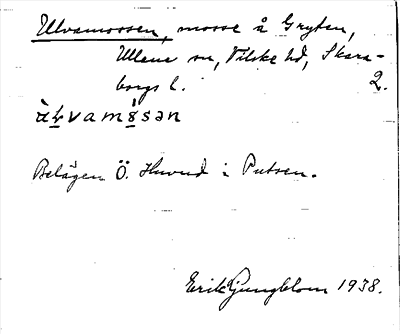 Ullvamossen, mosse å Gryten,
Ullene sn, Vilske hd, Skara-
borgs l. 2.
Belägen Ö. Huvud i Putsen.
Erik Ljungblom 1938.